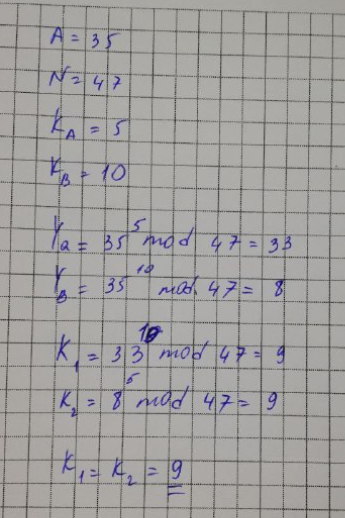 A = 35
N = 47
K_A = 5
K_B = 10
Y_a = 35^5 mod 47 = 33
Y_B = 35^10 mod 47 = 8
K_1 = 33^10 mod 47 = 9
K_2 = 8^5 mod 47 = 9
K_1 = K_2 = 9